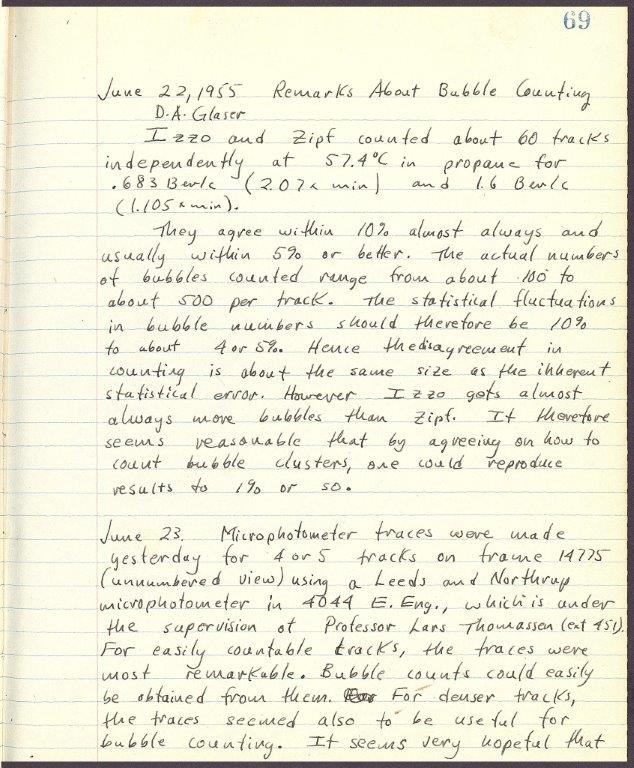 69
June 22, 1955 Remarks About Bubble Counting
D.A. Glaser
Izzo and Zipf counted about 60 tracks
independently at 57.4°C in propane for
.683 Bev/c (2.07 x min) and 1.6 Bev/c
(1.105 x min).
They agree within 10% almost always and
usually within 5% or better. The actual numbers
of bubbles counted range from about 100 to
about 500 per track. The statistical fluctuations
in bubble numbers should therefore be 10%
to about 4 or 5%. Hence the disagreement in
counting is about the same size as the inherent
statistical error. However Izzo gets almost
always more bubbles than Zipf. It therefore
seems reasonable that by agreeing on how to
count bubble clusters, one could reproduce
results to 1% or so.
June 23. Microphotometer traces were made
yesterday for 4 or 5 tracks on frame 14775
(unnumbered view) using a Leeds and Northrup
microphotometer in 4044 E. Eng., which is under
the supervision of Professor Lars Thomassen (ext 451).
For easily countable tracks, the traces were
most remarkable. Bubble counts could easily
be obtained from them. For denser tracks,
the traces seemed also to be useful for
bubble counting. It seems very hopeful that